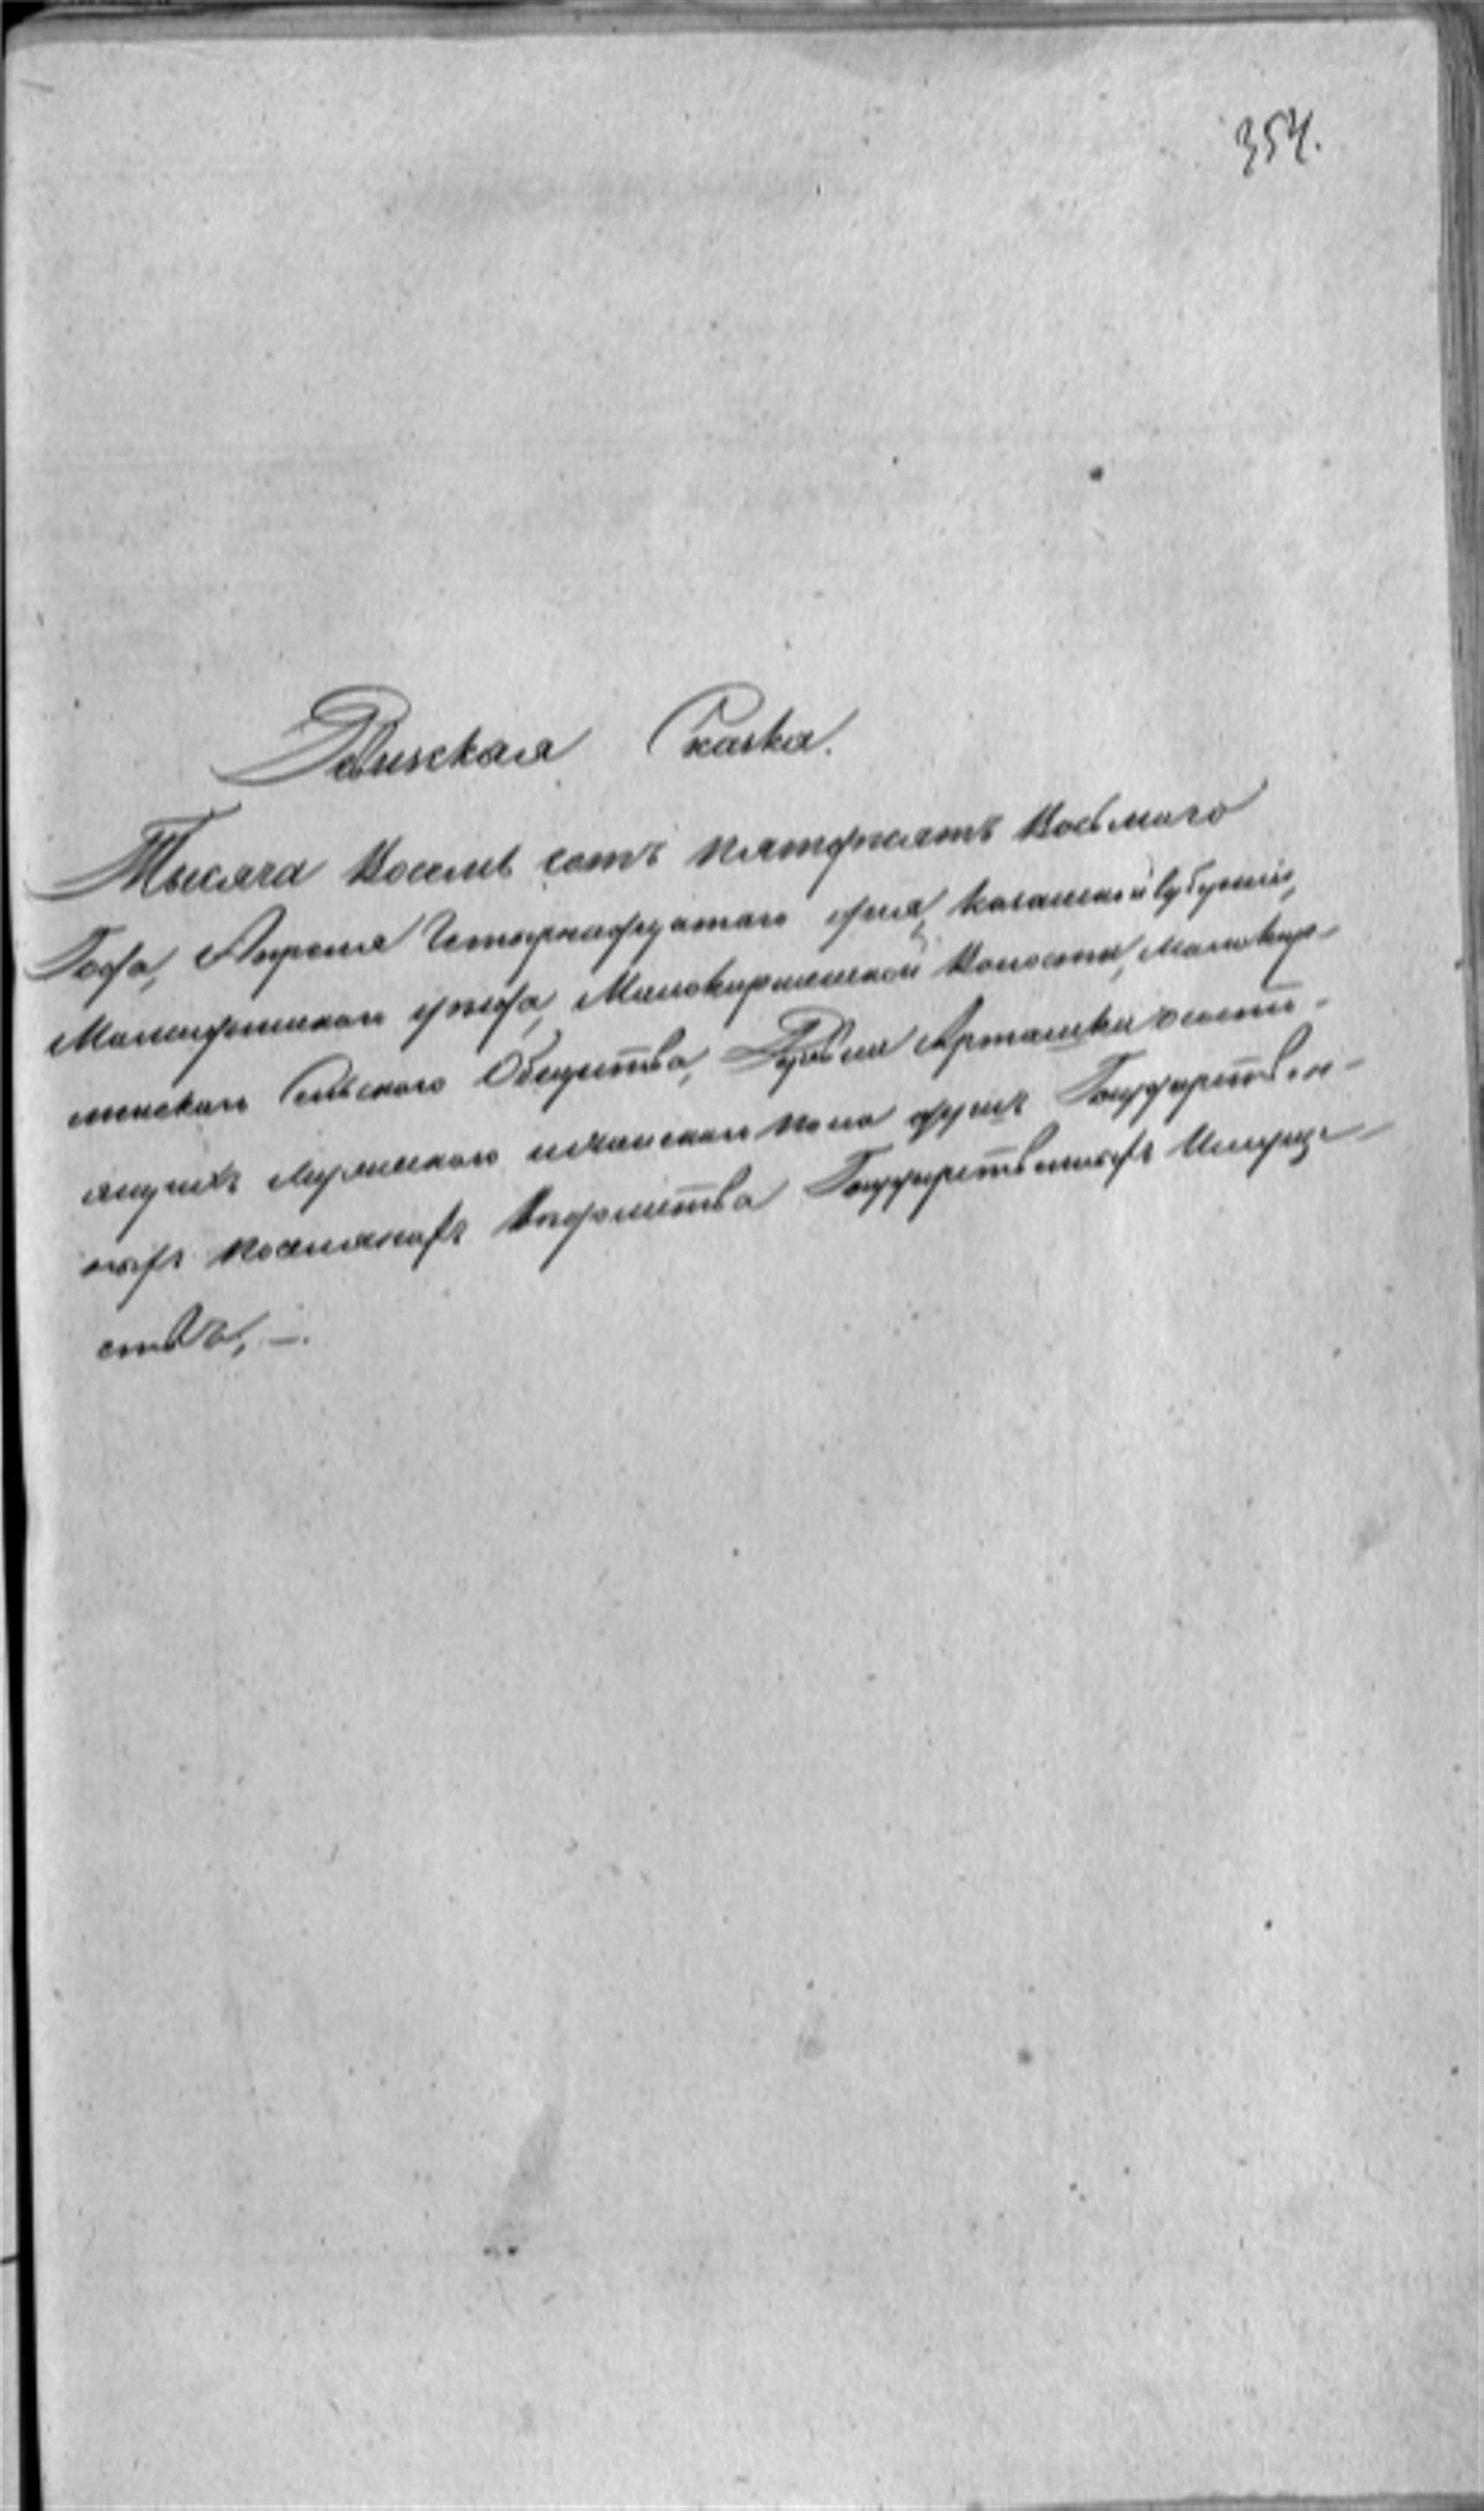 354.
Ревизская Сказка.
Тысяча восемь сотъ пятьдесятъ восьмаго
Года, Апреля Четырнадцатаго дня, Казанской губерніи,
Мамадышскаго уезда, Малокирменской Волости, Малокир-
менскаго Сельского Общества, Деревни Арташки о состо-
ящихъ мужескаго и женскаго пола душъ Государствен-
ныхъ поселянахъ Ведомства Государственныхъ Имуще-
ствъ, —.